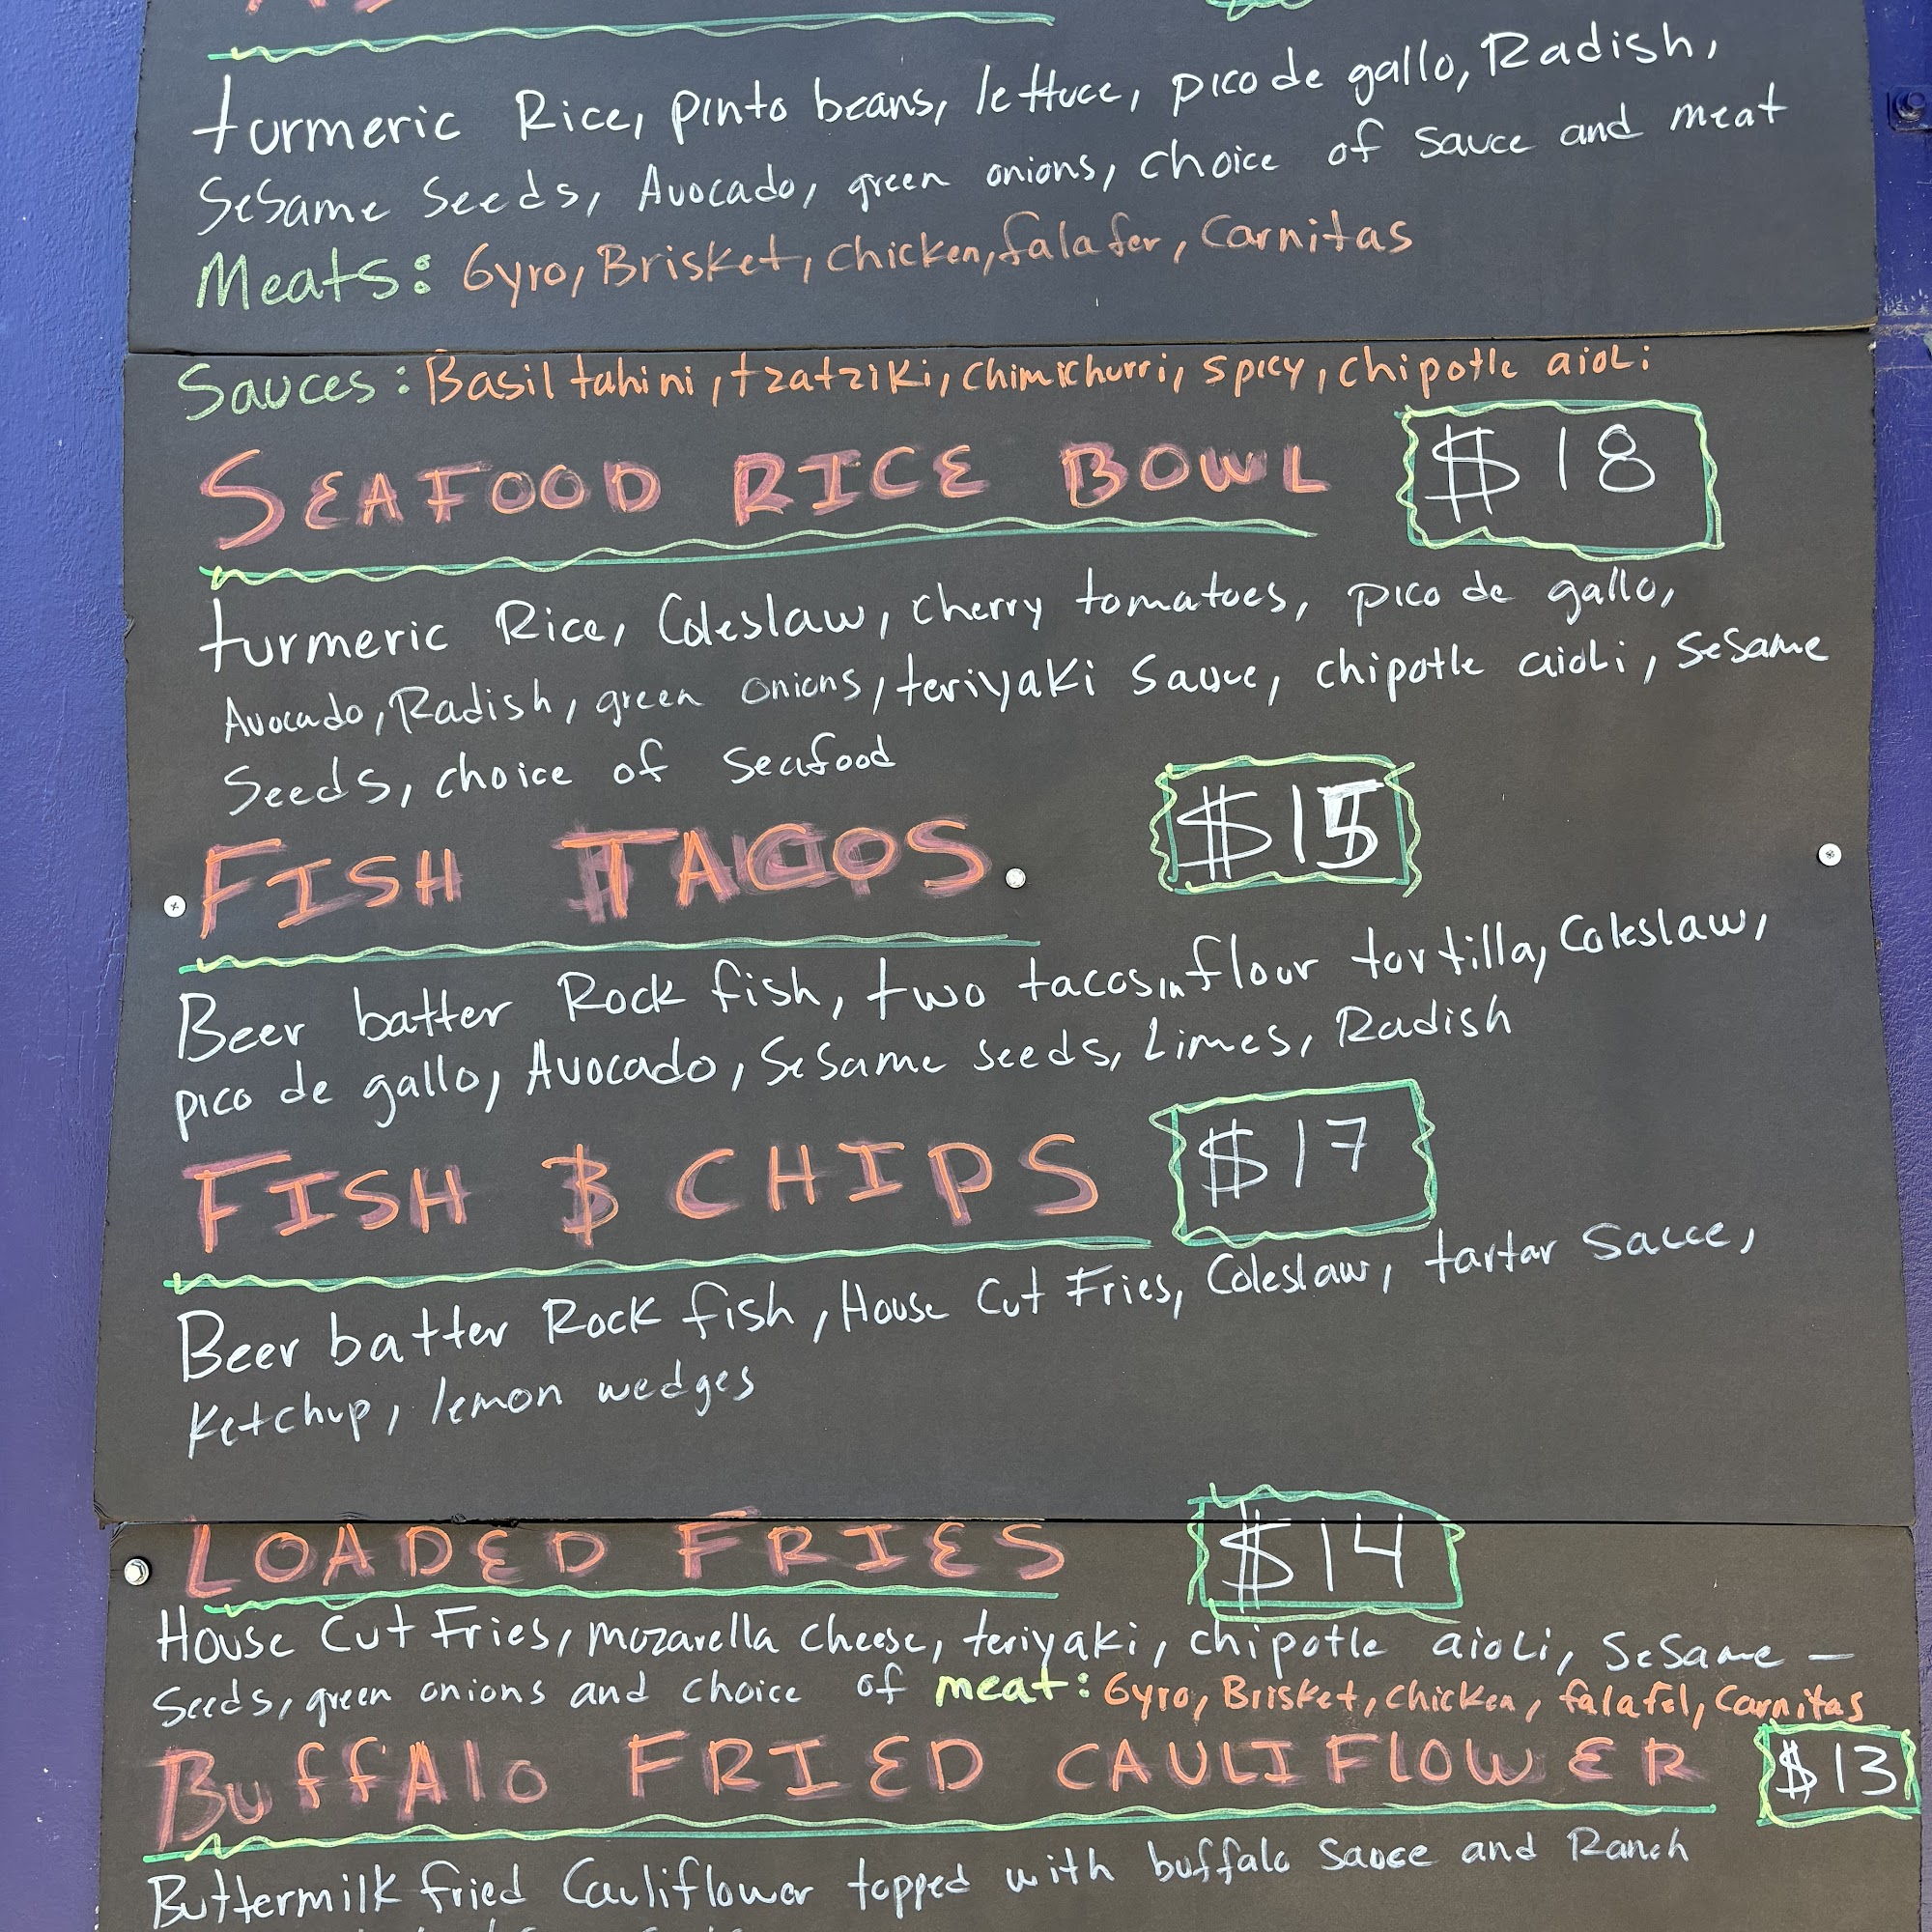 turmeric Rice, pinto beans, lettuce, pico de gallo, Radish,
Sesame Seeds, Avocado, green onions, choice of sauce and meat
Meats: Gyro, Brisket, chicken, falafer, Carnitas
Sauces: Basil tahini, tzatziki, chimichurri, spicy, chipotle aioli
SEAFOOD RICE BOWL $18
turmeric Rice, Coleslaw, cherry tomatoes, pico de gallo,
Avocado, Radish, green onions, teriyaki Sauce, chipotle aioli, Sesame
Seeds, choice of Seafood
FISH TACOS $15
Beer batter Rock fish, two tacos in flour tortilla, Coleslaw,
pico de gallo, Avocado, Sesame seeds, Limes, Radish
FISH $ CHIPS $17
Beer batter Rock fish, House Cut Fries, Coleslaw, tartar Sauce,
Ketchup, lemon wedges
LOADED FRIES $14
House Cut Fries, mozarella cheese, teriyaki, chipotle aioli, Sesame —
Seeds, green onions and choice of meat: Gyro, Brisket, chicken, falafel, Carnitas
BuffAlo FRIED CAULIFlOWER $13
Buttermilk fried Cauliflower topped with buffalo Sauce and Ranch